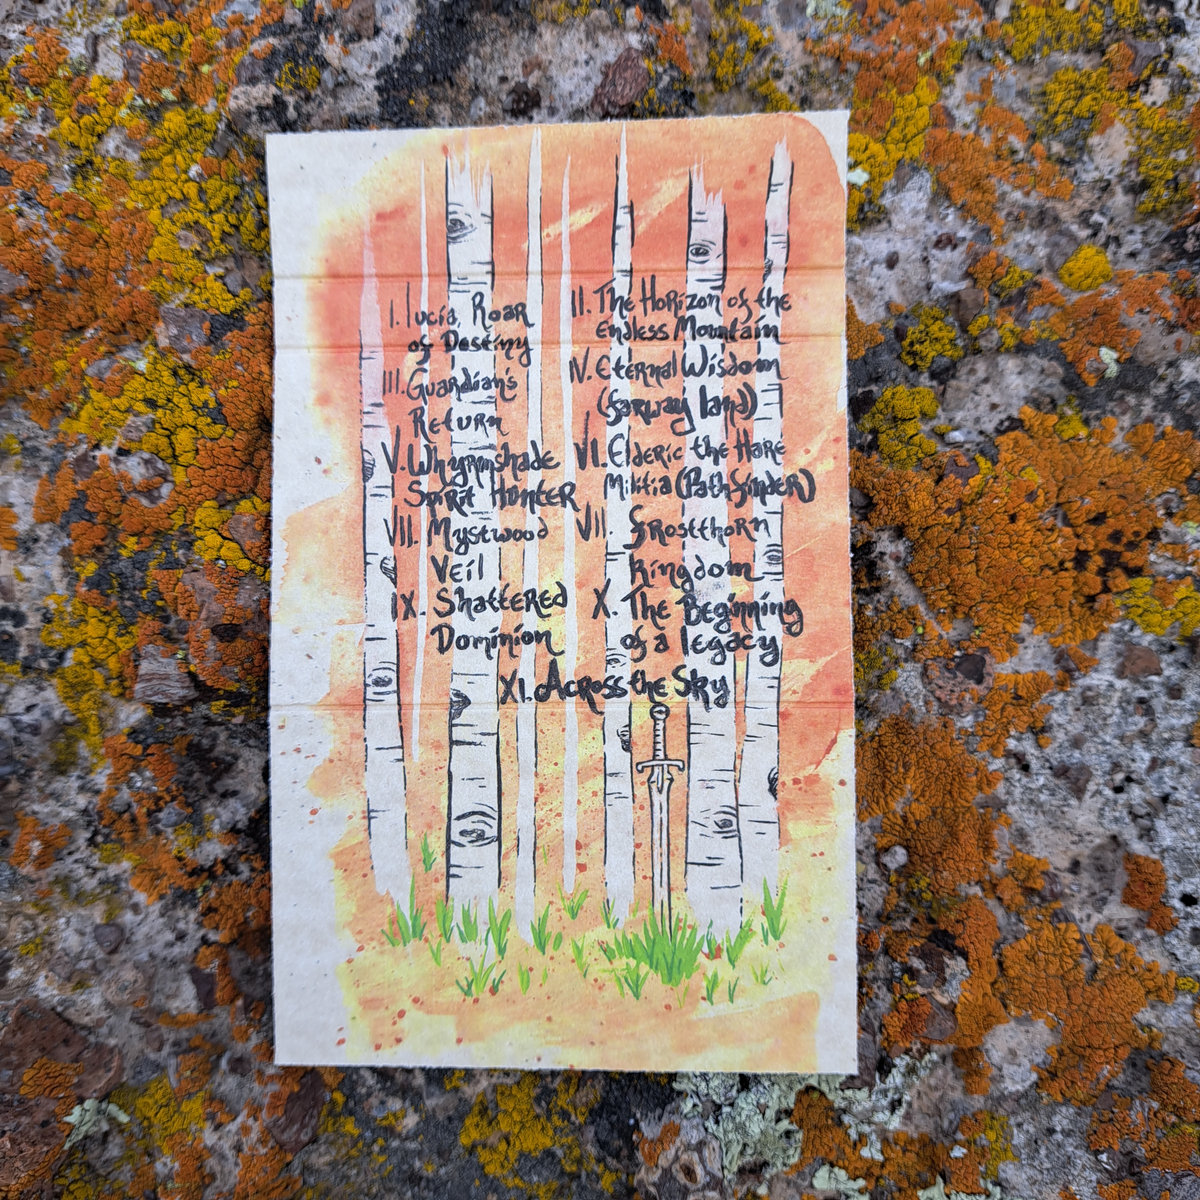 I. Lucia, Roar
of Destiny
II. The Horizon of the
Endless Mountain
III. Guardian's
Return
IV. Eternal Wisdom
(farway land)
V. Whyrmshade
Spirit Hunter
VI. Elderic the Hare
Militia (Pathfinder)
VII. Mystwood
Veil
VII. Frostthorn
Kingdom
IX. Shattered
Dominion
X. The Beginning
of a legacy
XI. Across the Sky